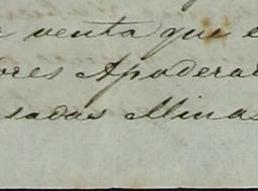 venta que e
ores Apodera
sadas Minas